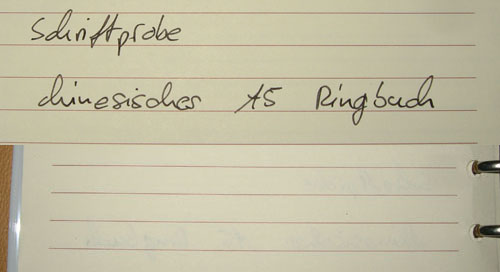 Schriftprobe
chinesisches A5 Ringbuch